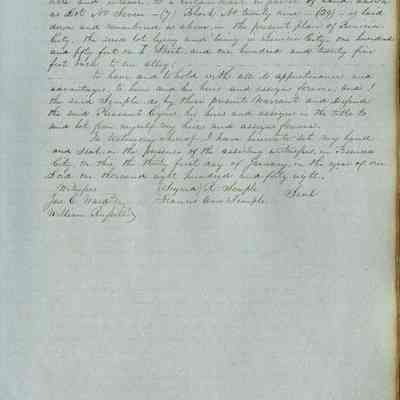 as Lot No Seven - (7) Block No twenty nine - (29) - as laid
down and numbered as above in the present plan of Benicia
City, the said lot lying and being in Benicia City one hundred
and fifty feet on I Street and one hundred and twenty five
feet back to an alley.
To have and to hold with all its appurtenances and
advantages, to him and his heirs and assigns forever, and I
the said Semple do by these presents Warrant and defend
the said Pleasant Byrne his heirs and assigns in the title to
said lot from myself my heirs and assigns forever.
In testimony whereof I have hereunto set my hand
and seal in the presence of the attesting witnesses, in Benicia
City on this the thirty first day of January in the year of our
Lord one thousand eight hundred and fifty eight.
Witness
Semple
Jas C. Ward
Frances Ann Semple
Seal
William